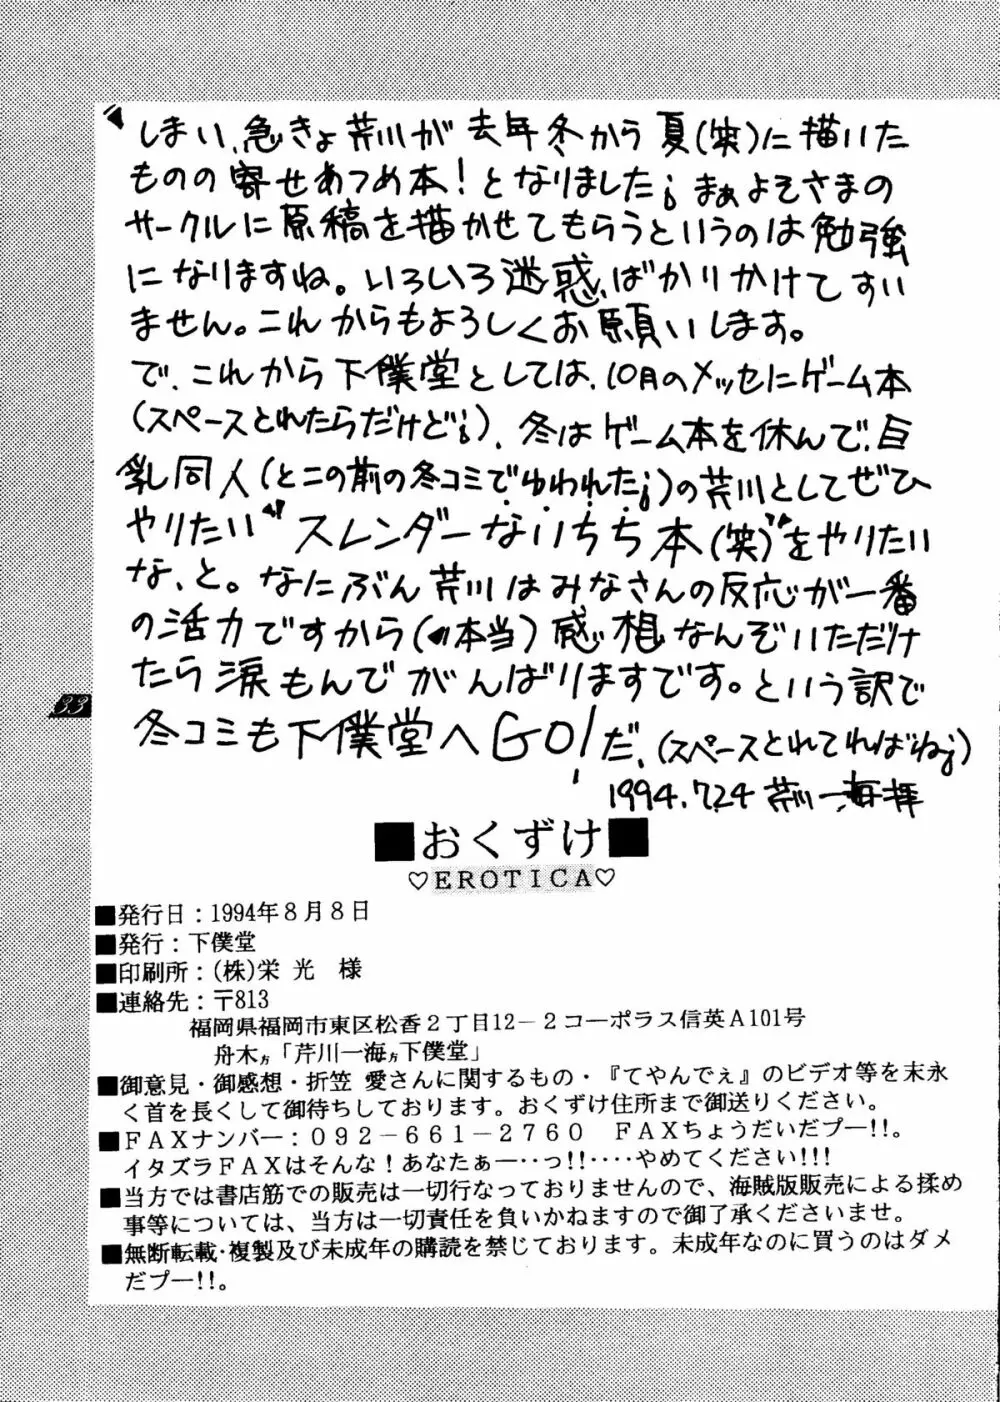 しまい、急きょ芹川が去年冬から夏(笑)に描いた
ものの寄せあつめ本！となりました。まぁよそさまの
サークルに原稿を描かせてもらうというのは勉強
になりますね。いろいろ迷惑ばかりかけてすい
ません。これからもよろしくお願いします。
で、これから下僕堂としては、10月のメッセにゲーム本
(スペースとれたらだけど)、冬はゲーム本を休んで、巨
乳同人(とこの前の冬コミでゆわれた)の芹川としてぜひ
やりたい“スレンダーないちち本(笑)”をやりたい
な、と。なにぶん芹川はみなさんの反応が一番
の活力ですから(本当)感想なんぞいただけ
たら涙もんでがんばりますです。という訳で
冬コミも下僕堂へGO!だ、(スペースとれてればね)
1994.7.24 芹川一海拝
33
■おくずけ■
♡EROTICA♡
■発行日：1994年８月８日
■発行：下僕堂
■印刷所：(株)栄 光 様
■連絡先：〒813
福岡県福岡市東区松香２丁目12－２コーポラス信英Ａ101号
舟木方「芹川一海方下僕堂」
■御意見・御感想・折笠 愛さんに関するもの・『てやんでぇ』のビデオ等を末永
く首を長くして御待ちしております。おくずけ住所まで御送りください。
■ＦＡＸナンバー：０９２－６６１－２７６０ ＦＡＸちょうだいだプー!!。
イタズラＦＡＸはそんな！あなたぁー‥っ!!‥‥やめてください!!!
■当方では書店筋での販売は一切行なっておりませんので、海賊版販売による揉め
事等については、当方は一切責任を負いかねますので御了承くださいませ。
■無断転載･複製及び未成年の購読を禁じております。未成年なのに買うのはダメ
だプー!!。